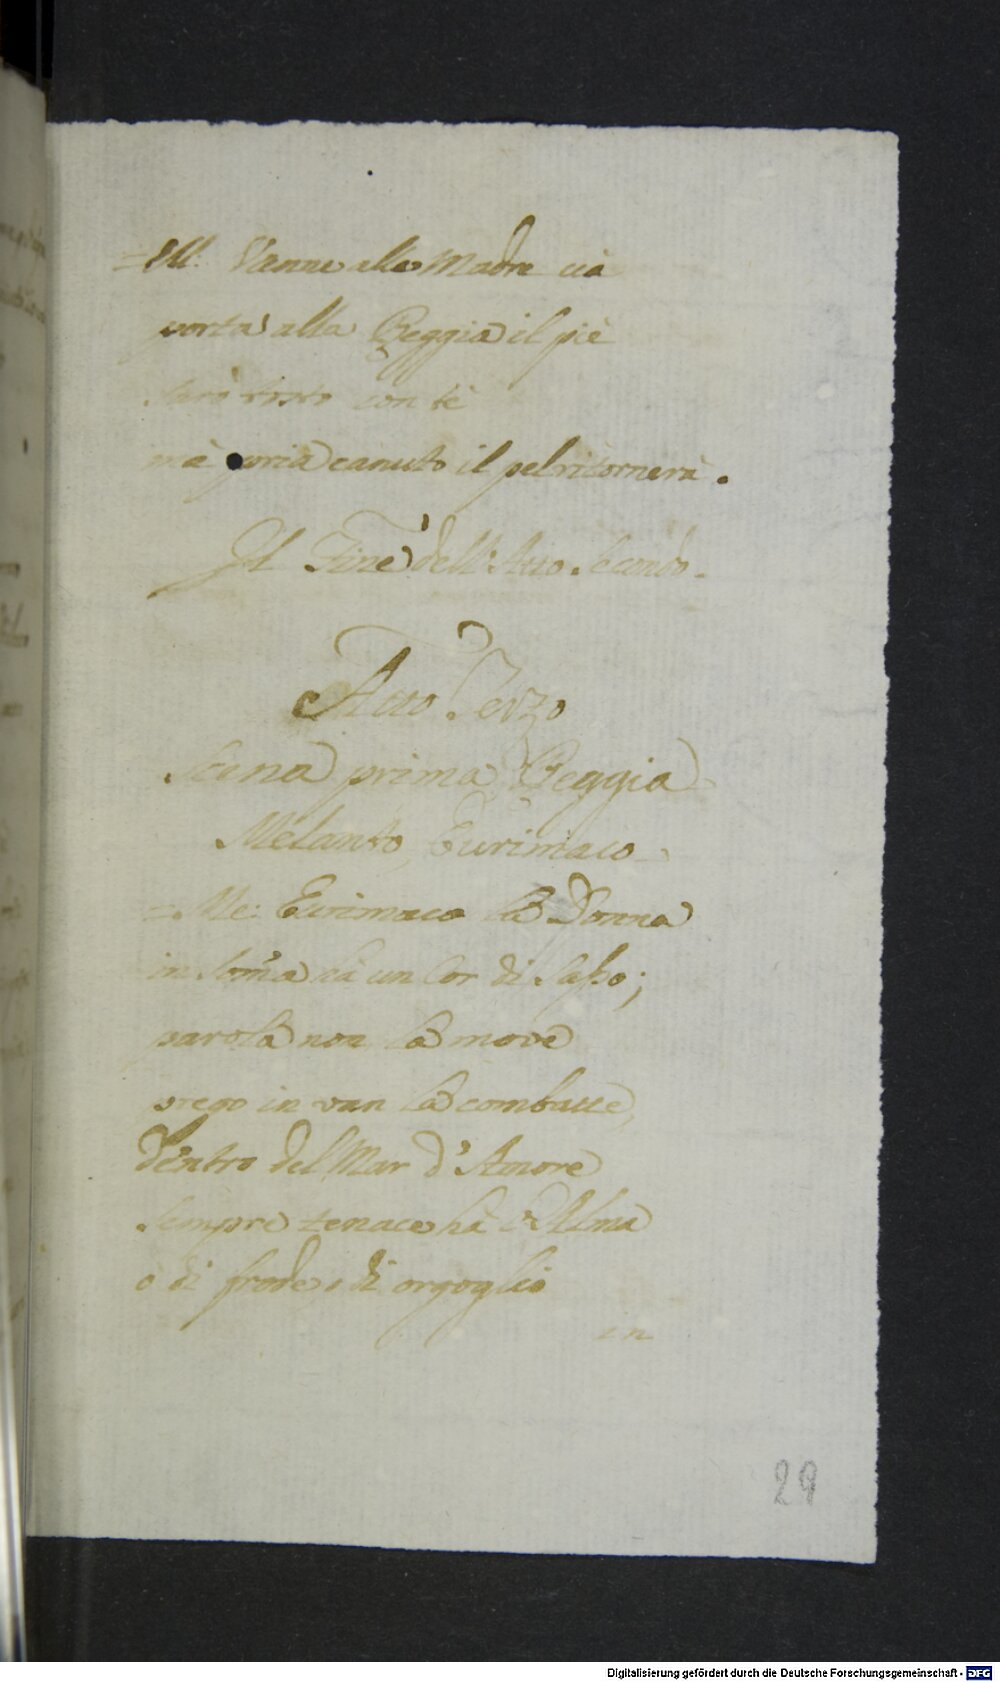 =Ul: Vanne alla Madre và
porta alla Reggia il piè
sarò tosto con tè
mà pria canuto il pel ritornerà.
Il Fine dell'Atto Secondo.
Atto Terzo
Scena prima Reggia
Melanto, Eurimaco
=Me: Eurimaco la Donna
in somà hà un Cor di Sasso;
parola non la move
prego in van la combatte,
dentro del Mar d'Amore
sempre tenace hà l'Alma
ò di frode, ò di orgoglio
in
29
Digitalisierung gefördert durch die Deutsche Forschungsgemeinschaft - DFG